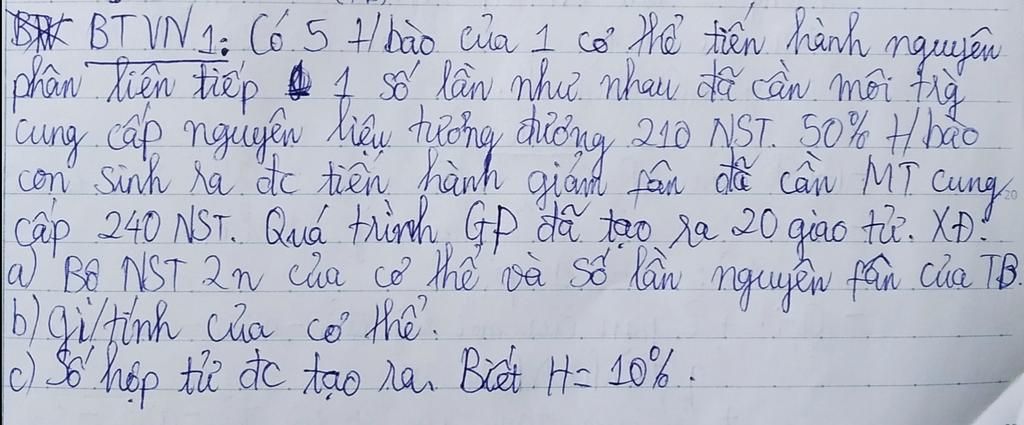 BTVN 1: Có 5 t/bào của 1 cơ thể tiến hành nguyên
phân liên tiếp 1 số lần như nhau đã cần môi trg
cung cấp nguyên liệu tương đương 210 NST. 50% t/bào
con sinh ra đc tiến hành giảm fân đã cần MT cung
cấp 240 NST. Quá trình GP đã tạo ra 20 giao tử. XĐ:
a) Bộ NST 2n của cơ thể và số lần nguyên fân của TB.
b) gi/tính của cơ thể.
c) Số hợp tử đc tạo ra. Biết H = 10%.